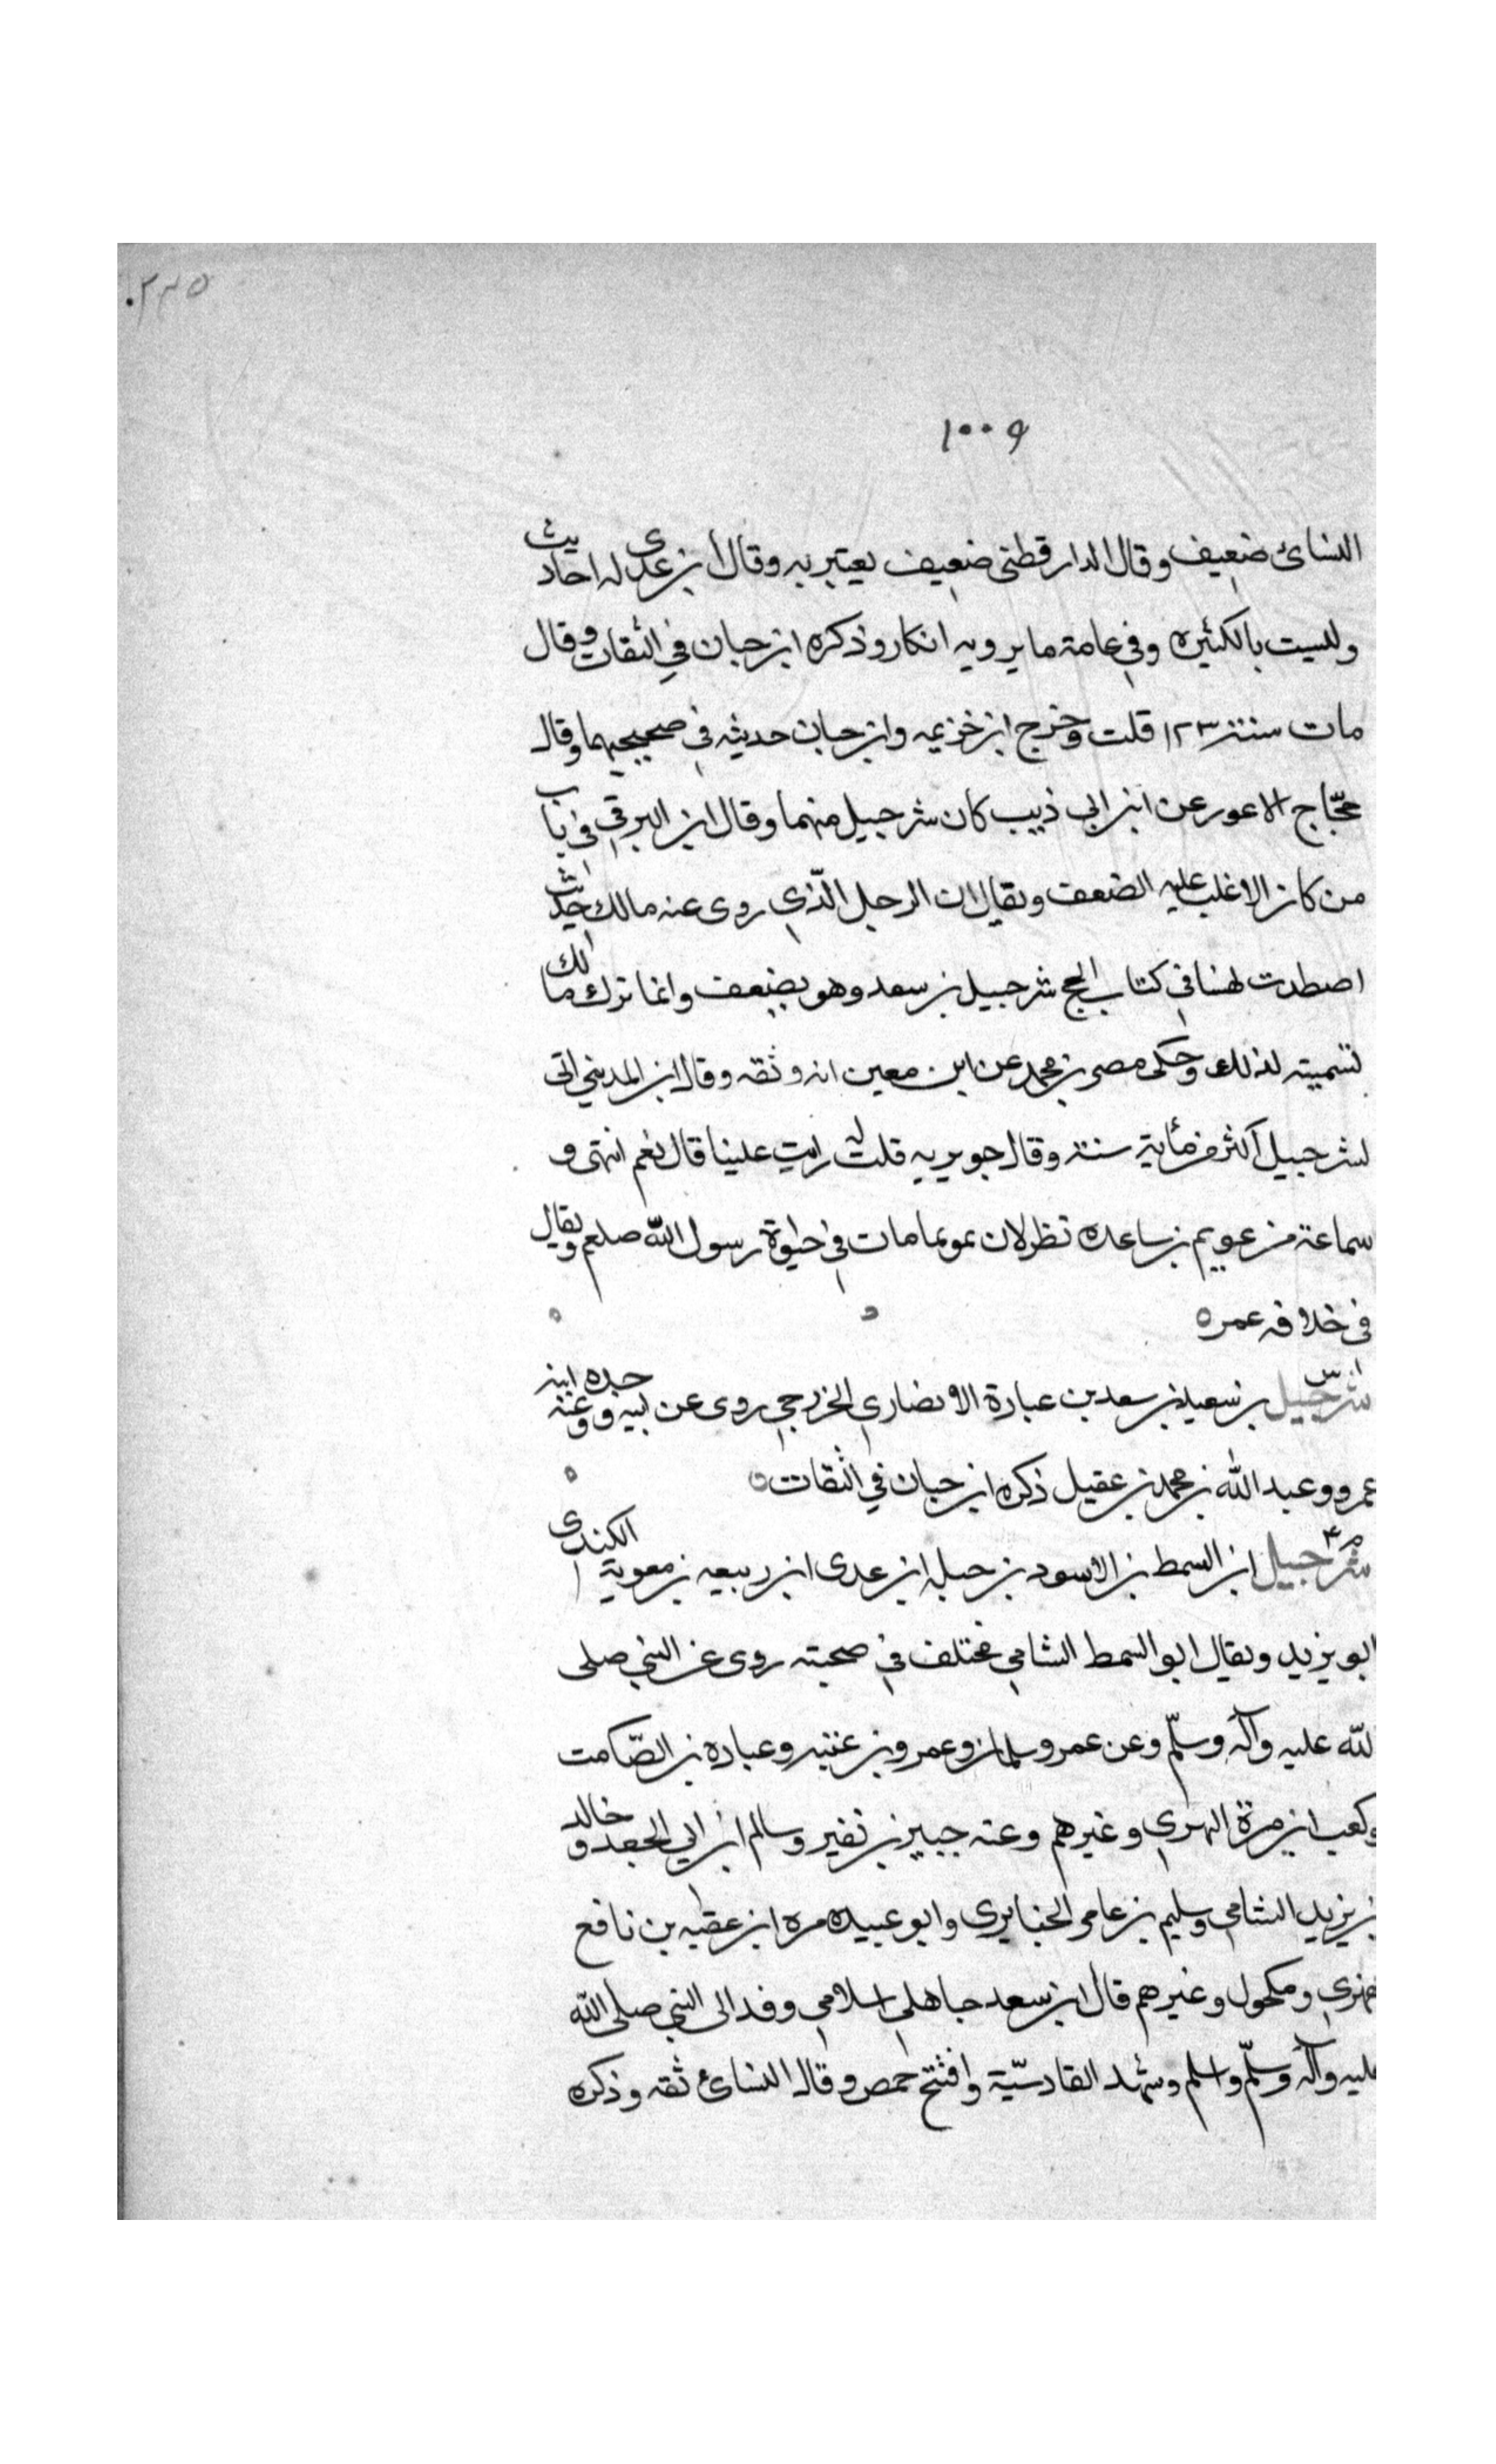 ٢٣٥
١٠٠٩
النسائ ضعيف وقال الدارقطنى ضعيف يعتبر به وقال ابن عدى له احاديث
وليست بالكثيره وفي عامة ما يرويه انكار وذكره ابن حبان في الثقات وقال
مات سنة ١٢٣ قلت وخرج ابن خزيمه وابن حبان حديثه في صحيحيهما وقال
حجّاج الاعور عن ابن ابى ذيب كان شرحبيل متهما وقال ابن البرقي في باب
من كان الاغلب عليه الضعف ويقال ان الرجل الّذي روى عنه مالك حديث
اصطدت نهسا في كتاب الحج شرحبيل بن سعد وهو يضعف وانما ترك مالك
تسميته لذلك وحكى مصر بن محمد عن ابن معين انه وثقه وقال ابن المديني اتى
لشرحبيل اكثر من مأية سنة وقال جويريه قلت له رايت عليا قال نعم انتهى و
سماعة من عويم بن ساعده نظر لان عويما مات في حيوة رسول اللّه صلعم ويقال
في خلافه عمره
شرحبيل بن سعيد بن سعد بن عبادة الانصاري الخزرجي روى عن ابيه وجده وعنه ابنه
عمرو وعبد اللّه بن محمد بن عقيل ذكره ابن حبان في الثقات
شرحبيل ابن السمط بن الاسود بن جبله ابن عدى ابن ربيعه بن معوية الكندى
ابو يزيد ويقال ابو السمط الشامي مختلف في صحبته روى عن النبي صلى
للّه عليه وآله وسلّم وعن عمر وسلمان وعمرو بن عنبه وعباده بن الصّامت
وكعب ابن مرة البهزي وغيرهم وعنه جبير بن نفير وسالم ابن ابي الجعد وخالد
بن يزيد الشامي وسليم بن عامر الخبايرى وابو عبيده مره ابن عقبه بن نافع
فهري ومكحول وغيرهم قال ابن سعد جاهلي اسلامي وفد الى النبي صلى اللّه
عليه وآله وسلّم واسلم وشهد القادسيّة وافتتح حمص وقال النسائ ثقه وذكره